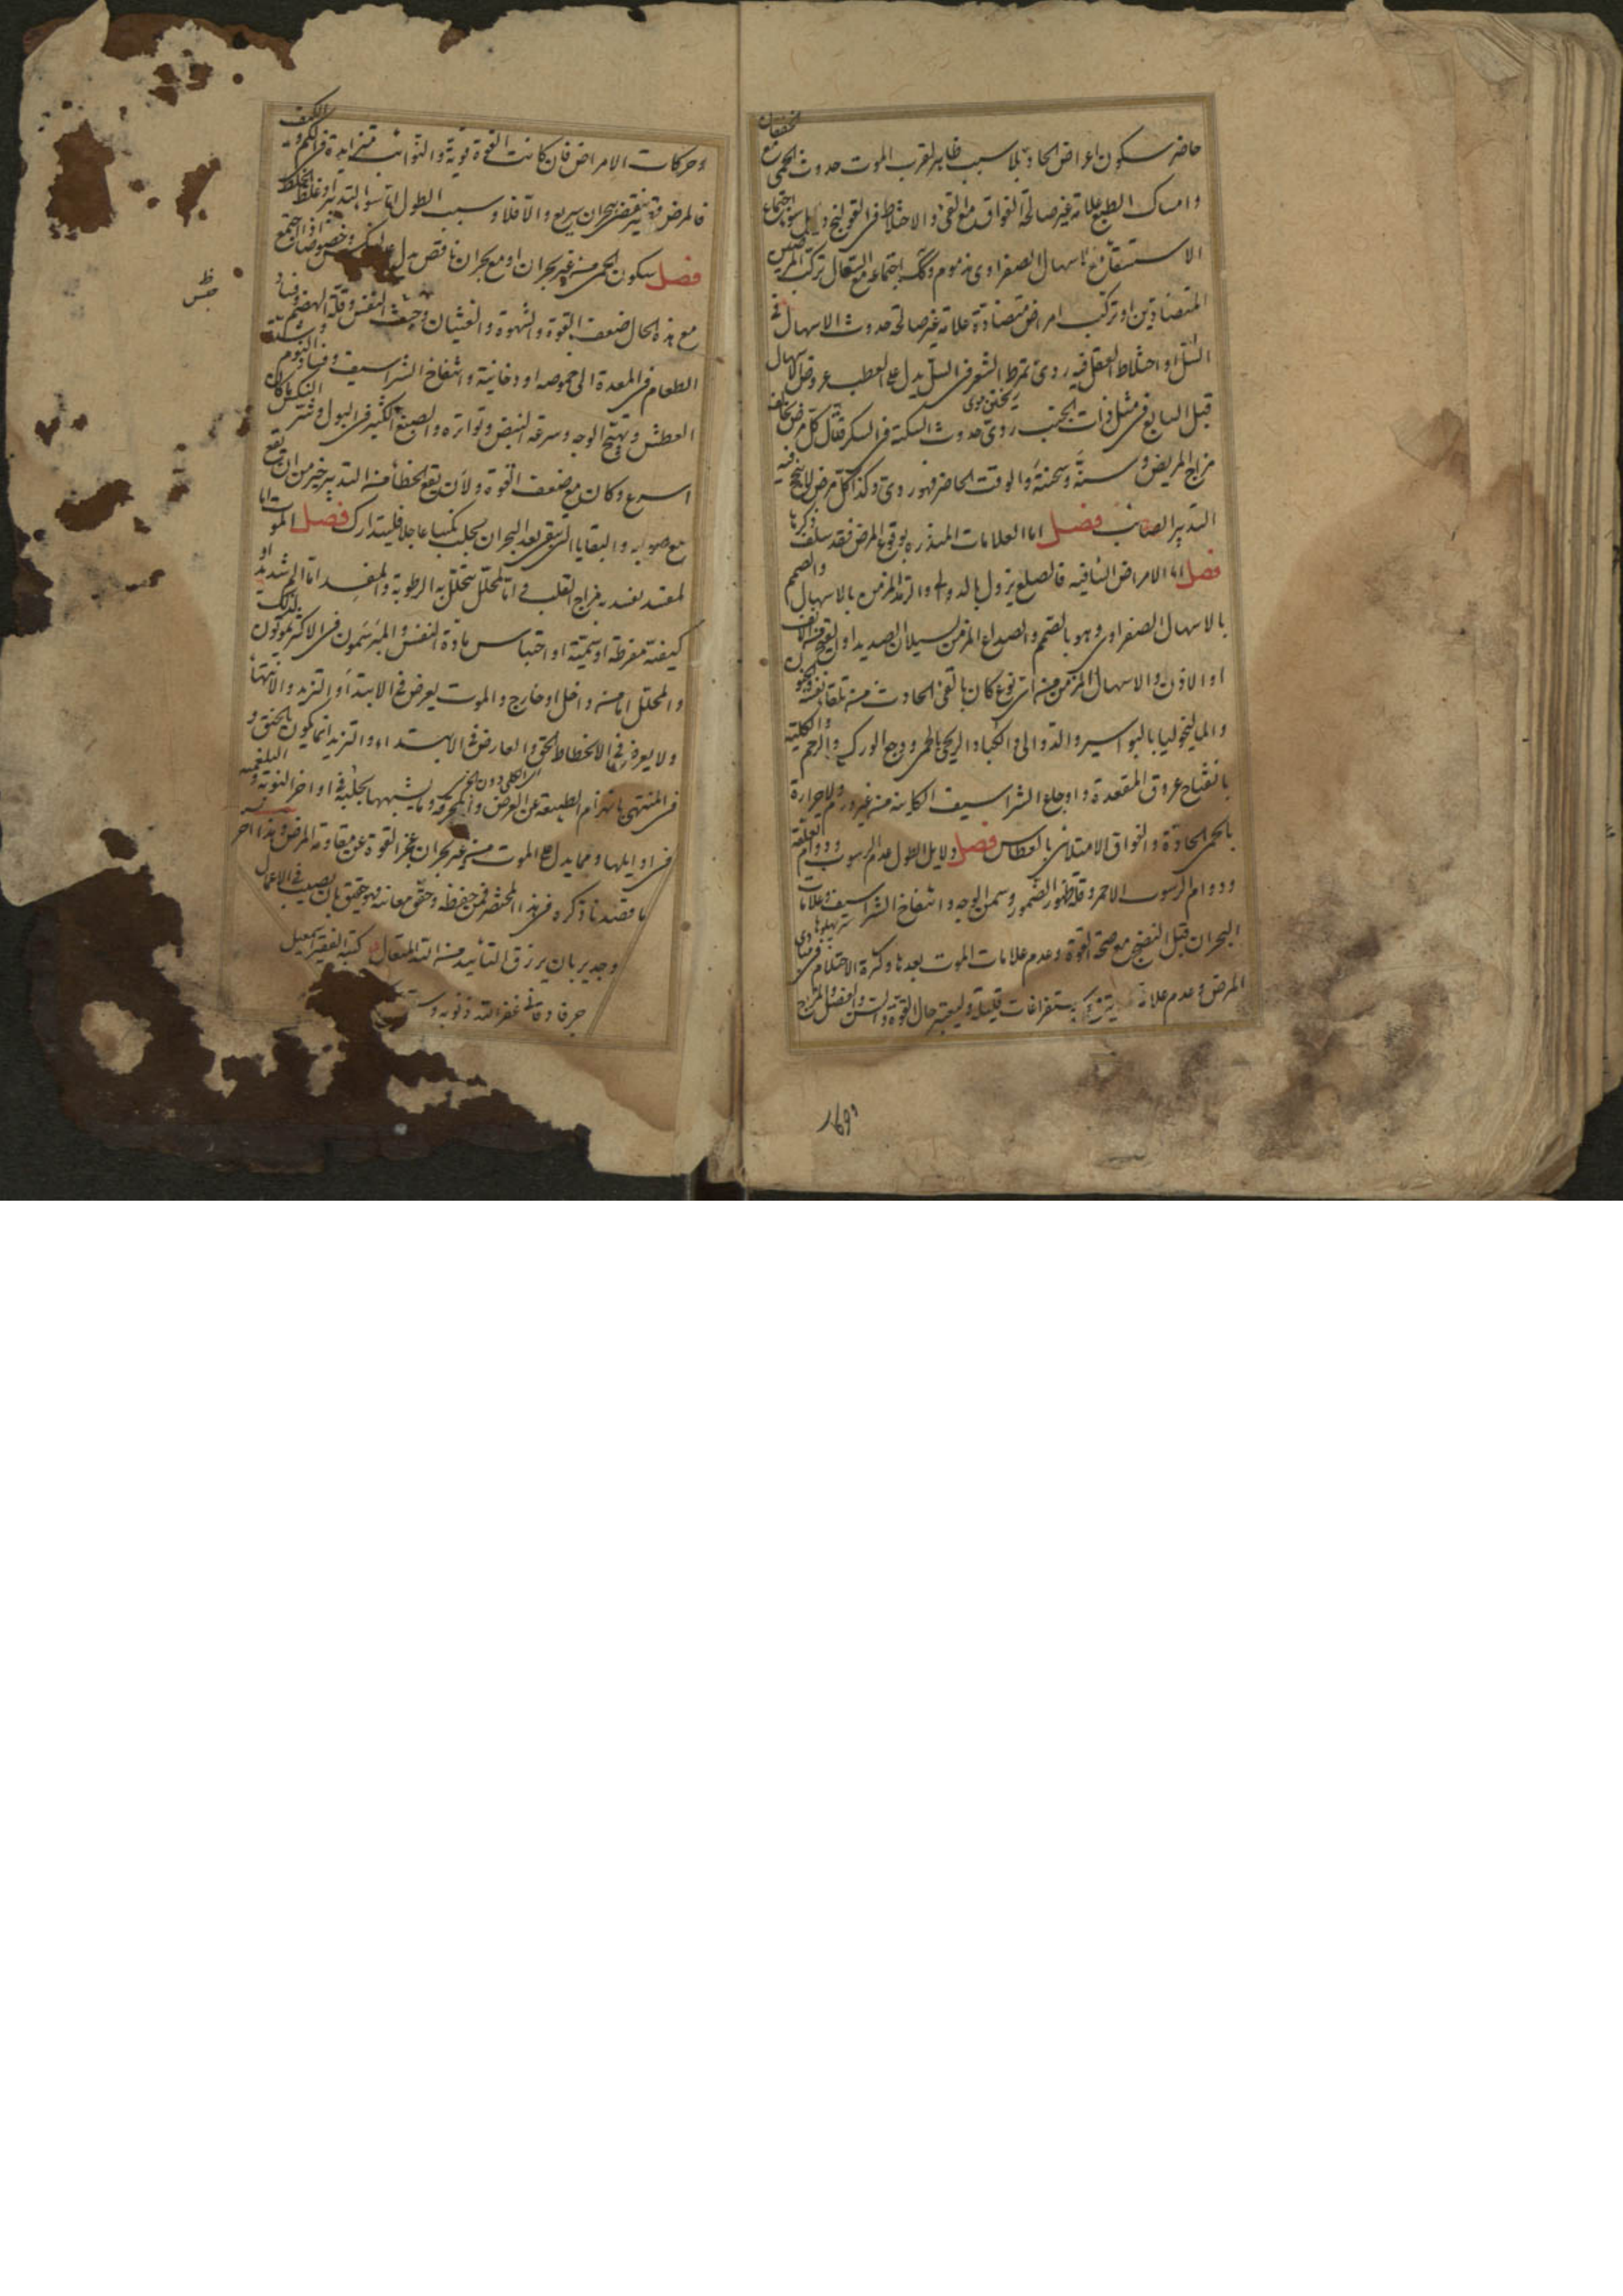 الخفقان
حاضر سكون اعراض الحادة بلا سبب ظاهر لقرب الموت حدوث الحمى مع
وامساك الطبع علامة غير صالحة الفواق مع القئ والاختلاط في القولنج وايلاوس اجتماع
الاستسقاء مع اسهال الصفراوى مذموم وكك اجتماعه مع السعال تركب المرض
المتضادين او تركب امراض متضادة علامة غير صالحة حدوث الاسهال في
السل او اختلاط العقل فيه ردى تمرط الشعر في السل يدل على العطب عروض الاسهال
ريختن موى
قبل السابع في مثل ذات الجنب ردى حدوث السكتة في السكر قتال كل مرض يخالف
مزاج المريض وسنه وسحنته والوقت الحاضر فهو ردى وكذا كل مرض لا ينجح فيه
التدبير الصائب فصل اما العلامات المنذره بوقوع المرض فقد سلف ذكرها
فصل اما الامراض الشافيه فالصلع يزول بالدوالى والرمد المزمن بالاسهال والصمم
بالاسهال الصفراوى وهو بالصمم والصداع المزمن بسيلان الصديد او القيح من الانف
او الاذن والاسهال المزمن من اى نوع كان بالقئ الحادث من تلقاء نفسه والجنون
والماليخوليا بالبواسير والدوالى والكباد الريحى بالحمى ووجع الورك والرحم والكلية
بانفتاح عروق المقعدة واوجاع الشراسيف الكاينة من غير ورم ولا حرارة
بالحمى الحادة والفواق الامتلائى بالعطاس فصل دلايل الطول عدم الرسوب ودوام
ودوام الرسوب الاحمر وقلة ظهور الضمور وسمن الوجه وانتفاخ الشراسيف وعلامات
البحران قبل النضج مع صحة القوة وعدم علامات الموت بعدها وكثرة الاحتلام في مبادى
المرض وعدم علامة استفراغات قليلة وليعتبر حال القوة والسن والفصل والمزاج
١٦٩
وحركات الامراض فان كانت القوة قوية والنوائب متزايدة في الكم والكيف
فالمرض قصير ينقضى ببحران سريع والا فلا وسبب الطول اما سوء التدبير او غلظ الخلط
فصل سكون الحمى من غير بحران او مع بحران ناقص يدل على النكس وخصوصا اذا اجتمع
مع هذه الحال ضعف القوة والشهوة والغثيان وخبث النفس وقلة الهضم وفساد
الطعام في المعدة الى حموضه او دخانية وانتفاخ الشراسيف وفساد النوم وشدة
العطش وتهيج الوجه وسرعة النبض وتواتره والصبغ الكثير في البول وشر النكس ما كان
اسرع وكان مع ضعف القوة ولان يقع الخطأ من التدبير خير من ان يقع
مع صوابه والبقايا التى تبقى بعد البحران تجلب نكسا عاجلا فليتدارك فصل الموت اما
لمفسد يفسد به مزاج القلب او اما لمحلل تتحلل به الرطوبة والمفسد اما الم شديد او
كيفية مفرطة او سمية او احتباس مادة النفس والمبرسمون في الاكثر يموتون لذلك
والمحلل اما من داخل او خارج والموت يعرض في الابتداء والتزيد والانتهاء
ولا يعرض في الانحطاط الحق والعارض في الابتداء والتزيد انما يكون بالخنق و
اى الكلى دون الجزئى
في المنتهى بانهزام الطبيعة عن المرض والمحرقه وما يشبهها يجلبه في اواخر النوبة والبلغمية
في اوايلها ومما يدل على الموت من غير بحران عجز القوة عن مقاومة المرض وهذا اخر
ما قصدنا ذكره في هذا المختصر فمن حفظه وحقق معانيه فهو حقيق بان يصيب في الاعمال
وجدير بان يرزق التأييد من الله المتعال كتبه الفقير اسمعيل
جرفادقانى غفر الله ذنوبه